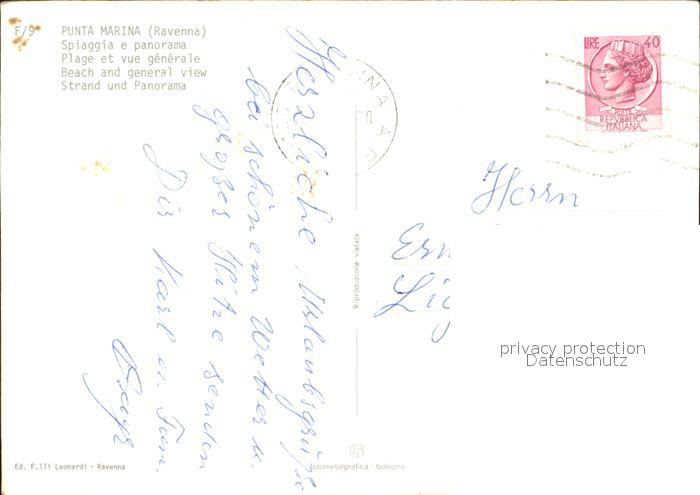 F/9
PUNTA MARINA (Ravenna)
Spiaggia e panorama
Plage et vue générale
Beach and general view
Strand und Panorama
Herzliche Urlaubsgrüße
bei schönem Wetter u.
großer Hitze senden
Dir Karl u. Fam.
LIRE 40
POSTE
REPVBBLICA
ITALIANA
NNA A
Herrn
Riproduzione vietata
privacy protection
Datenschutz
Ed. F.lli Leonardi - Ravenna
fotometalgrafica - bologna